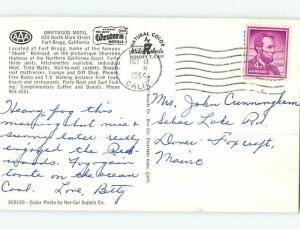 AAA
DRIFTWOOD MOTEL
820 North Main Street
Fort Bragg, California
Located at Fort Bragg, home of the famous
"Skunk" Railroad, on the picturesque Shoreline
Highway of the Northern California Coast. Forty-
three units. Kitchenettes available. Individual
Heat. Tiled Baths. Wall-to-wall carpets. Beauty-
rest mattresses. Lounge and Gift Shop. Phones.
Free Radio and T.V. Walking distance from town,
beach and restaurants. Party Boats and Surf
Fishing. Complimentary Coffee and Donuts. Phone
NATURAL GO
OCT
1956
CALIF.
Heavy fog this
morning but nice &
sunny later. Really
enjoyed the Red-
woods. Fog again
tonite on the ocean
Coast. Love, Betty
Mrs. John Cunningham
Sebec Lake Rd.
Dover-Foxcroft,
Maine
SC8120-Color Photo by Nor-Cal Supply Co.